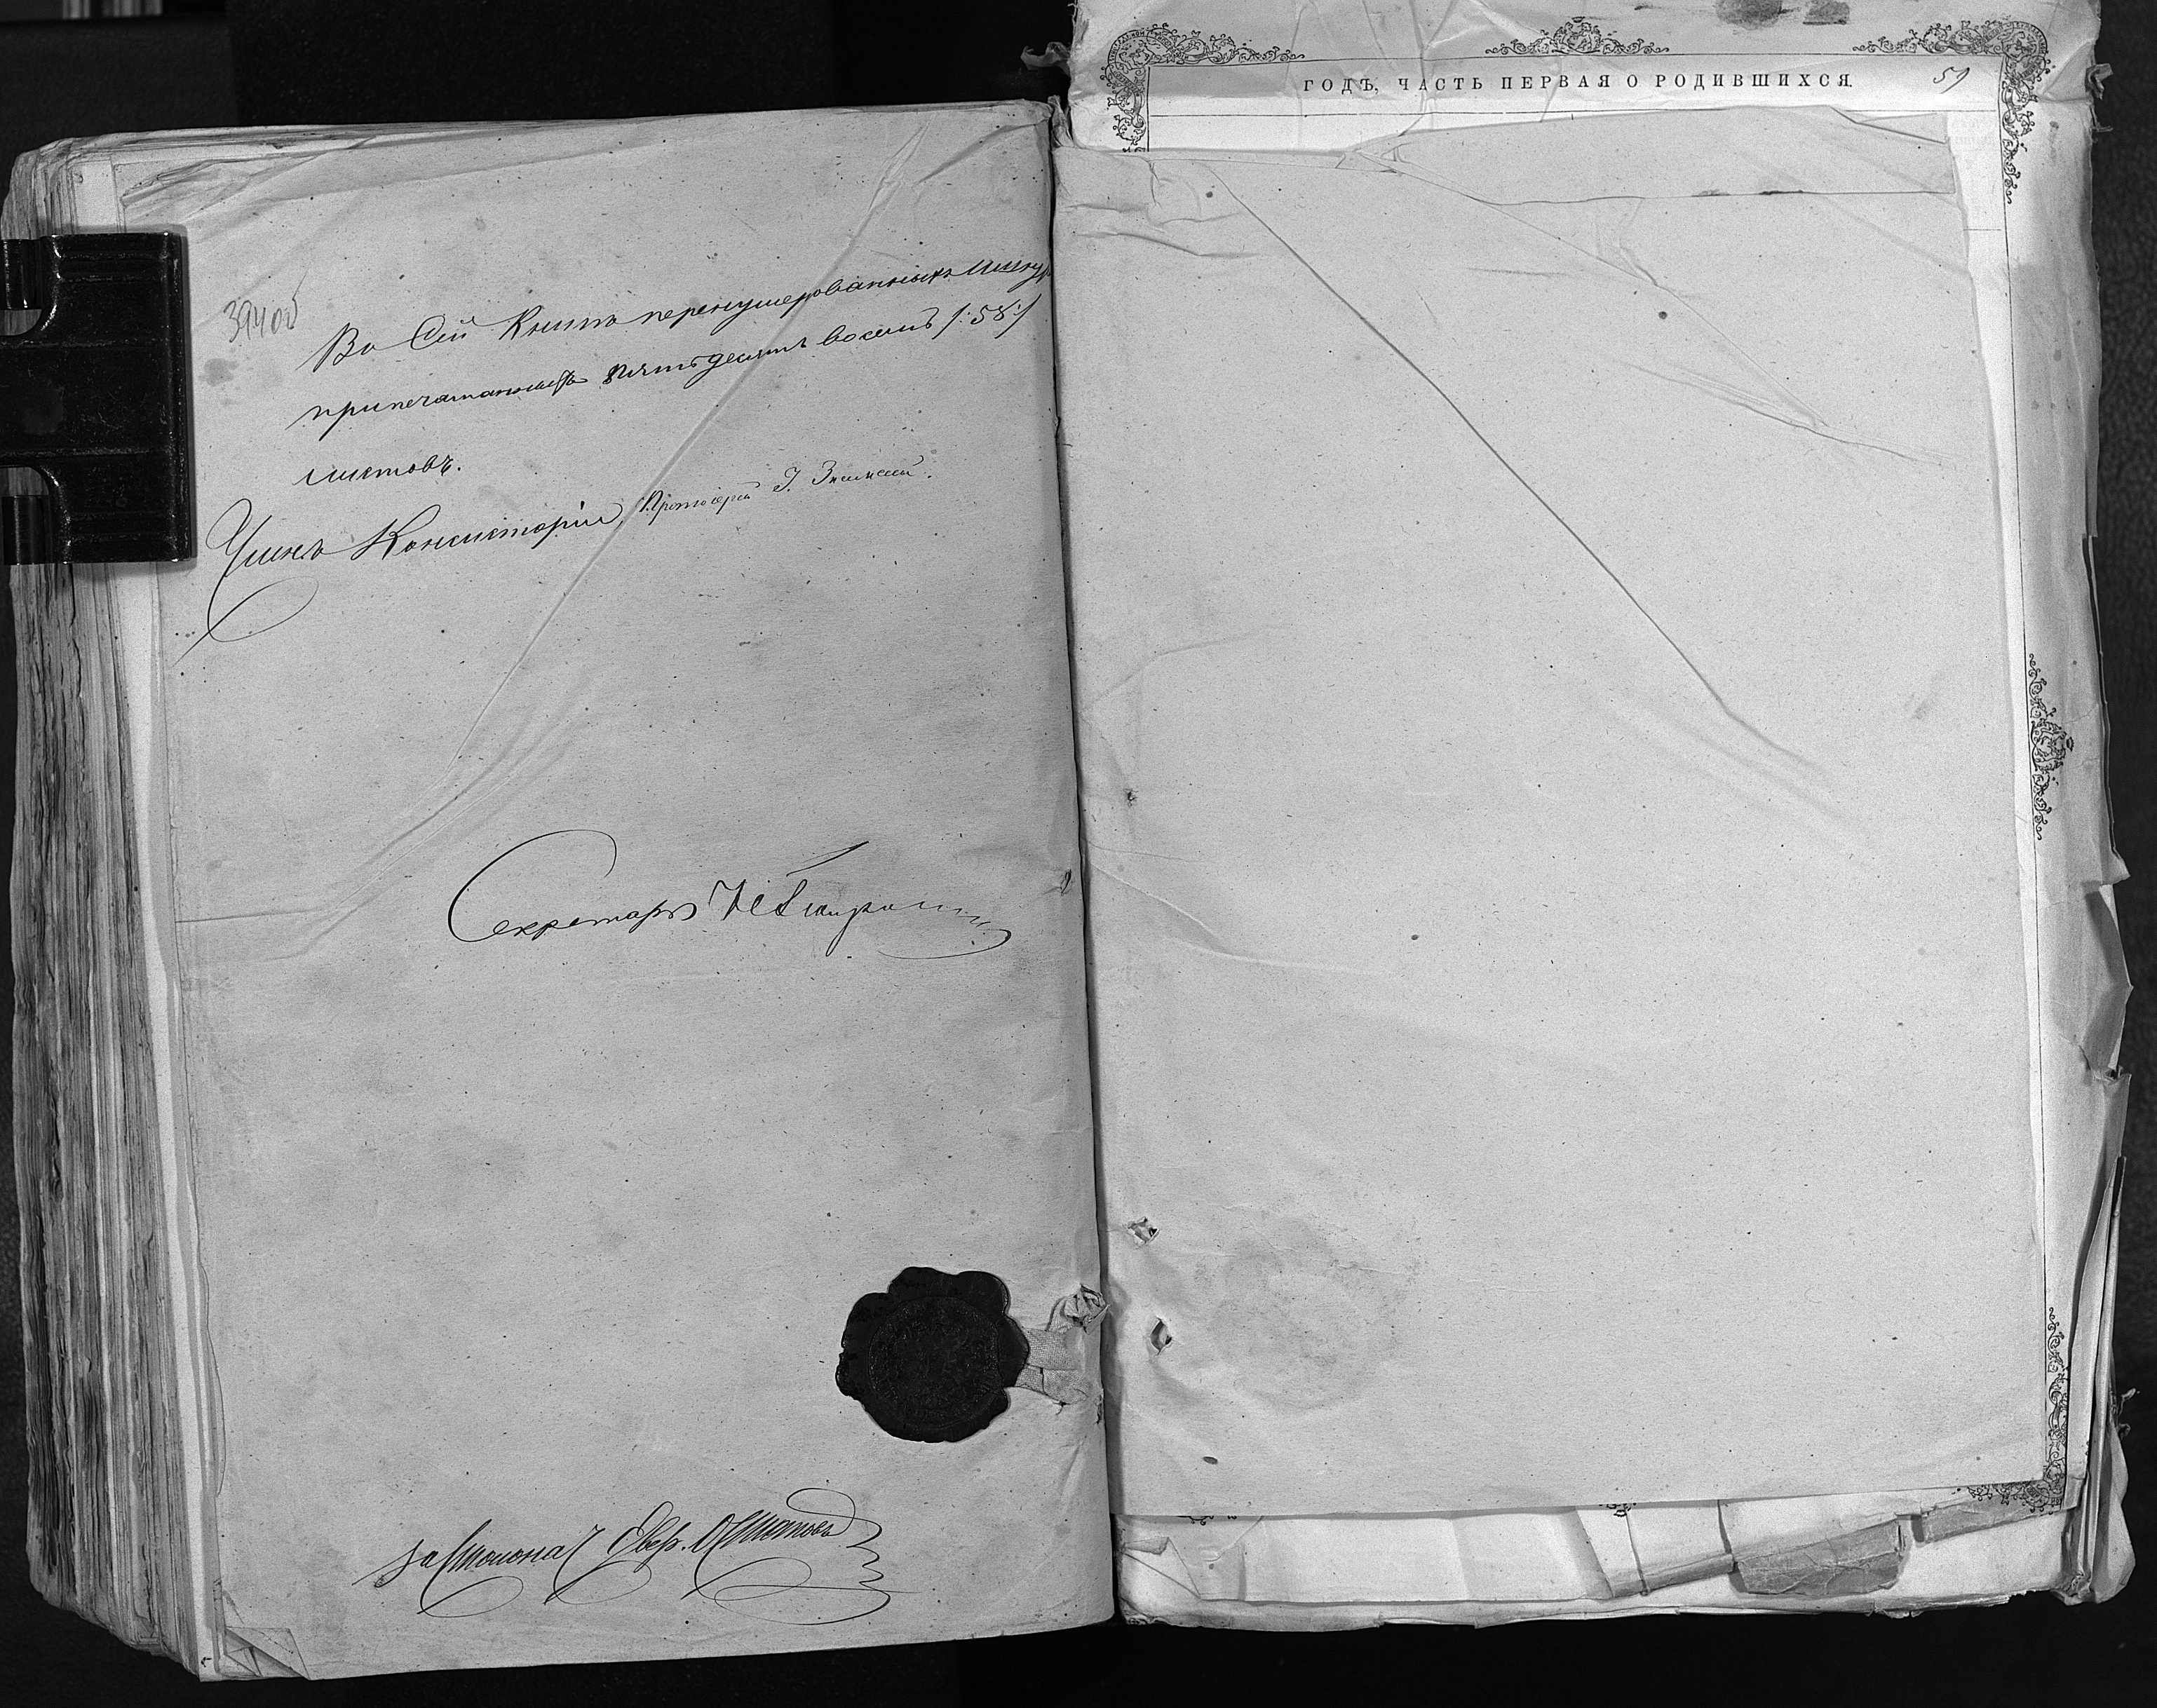 394об
Въ Сей Книгѣ перенумерованныхъ
припечатанныхъ пятьдесятъ восемь /:58:/
листовъ.
Членъ Консисторіи, Протоіерей І.
Секретарь
За Столонач.
ГОДЪ, ЧАСТЬ ПЕРВАЯ О РОДИВШИХСЯ.
59